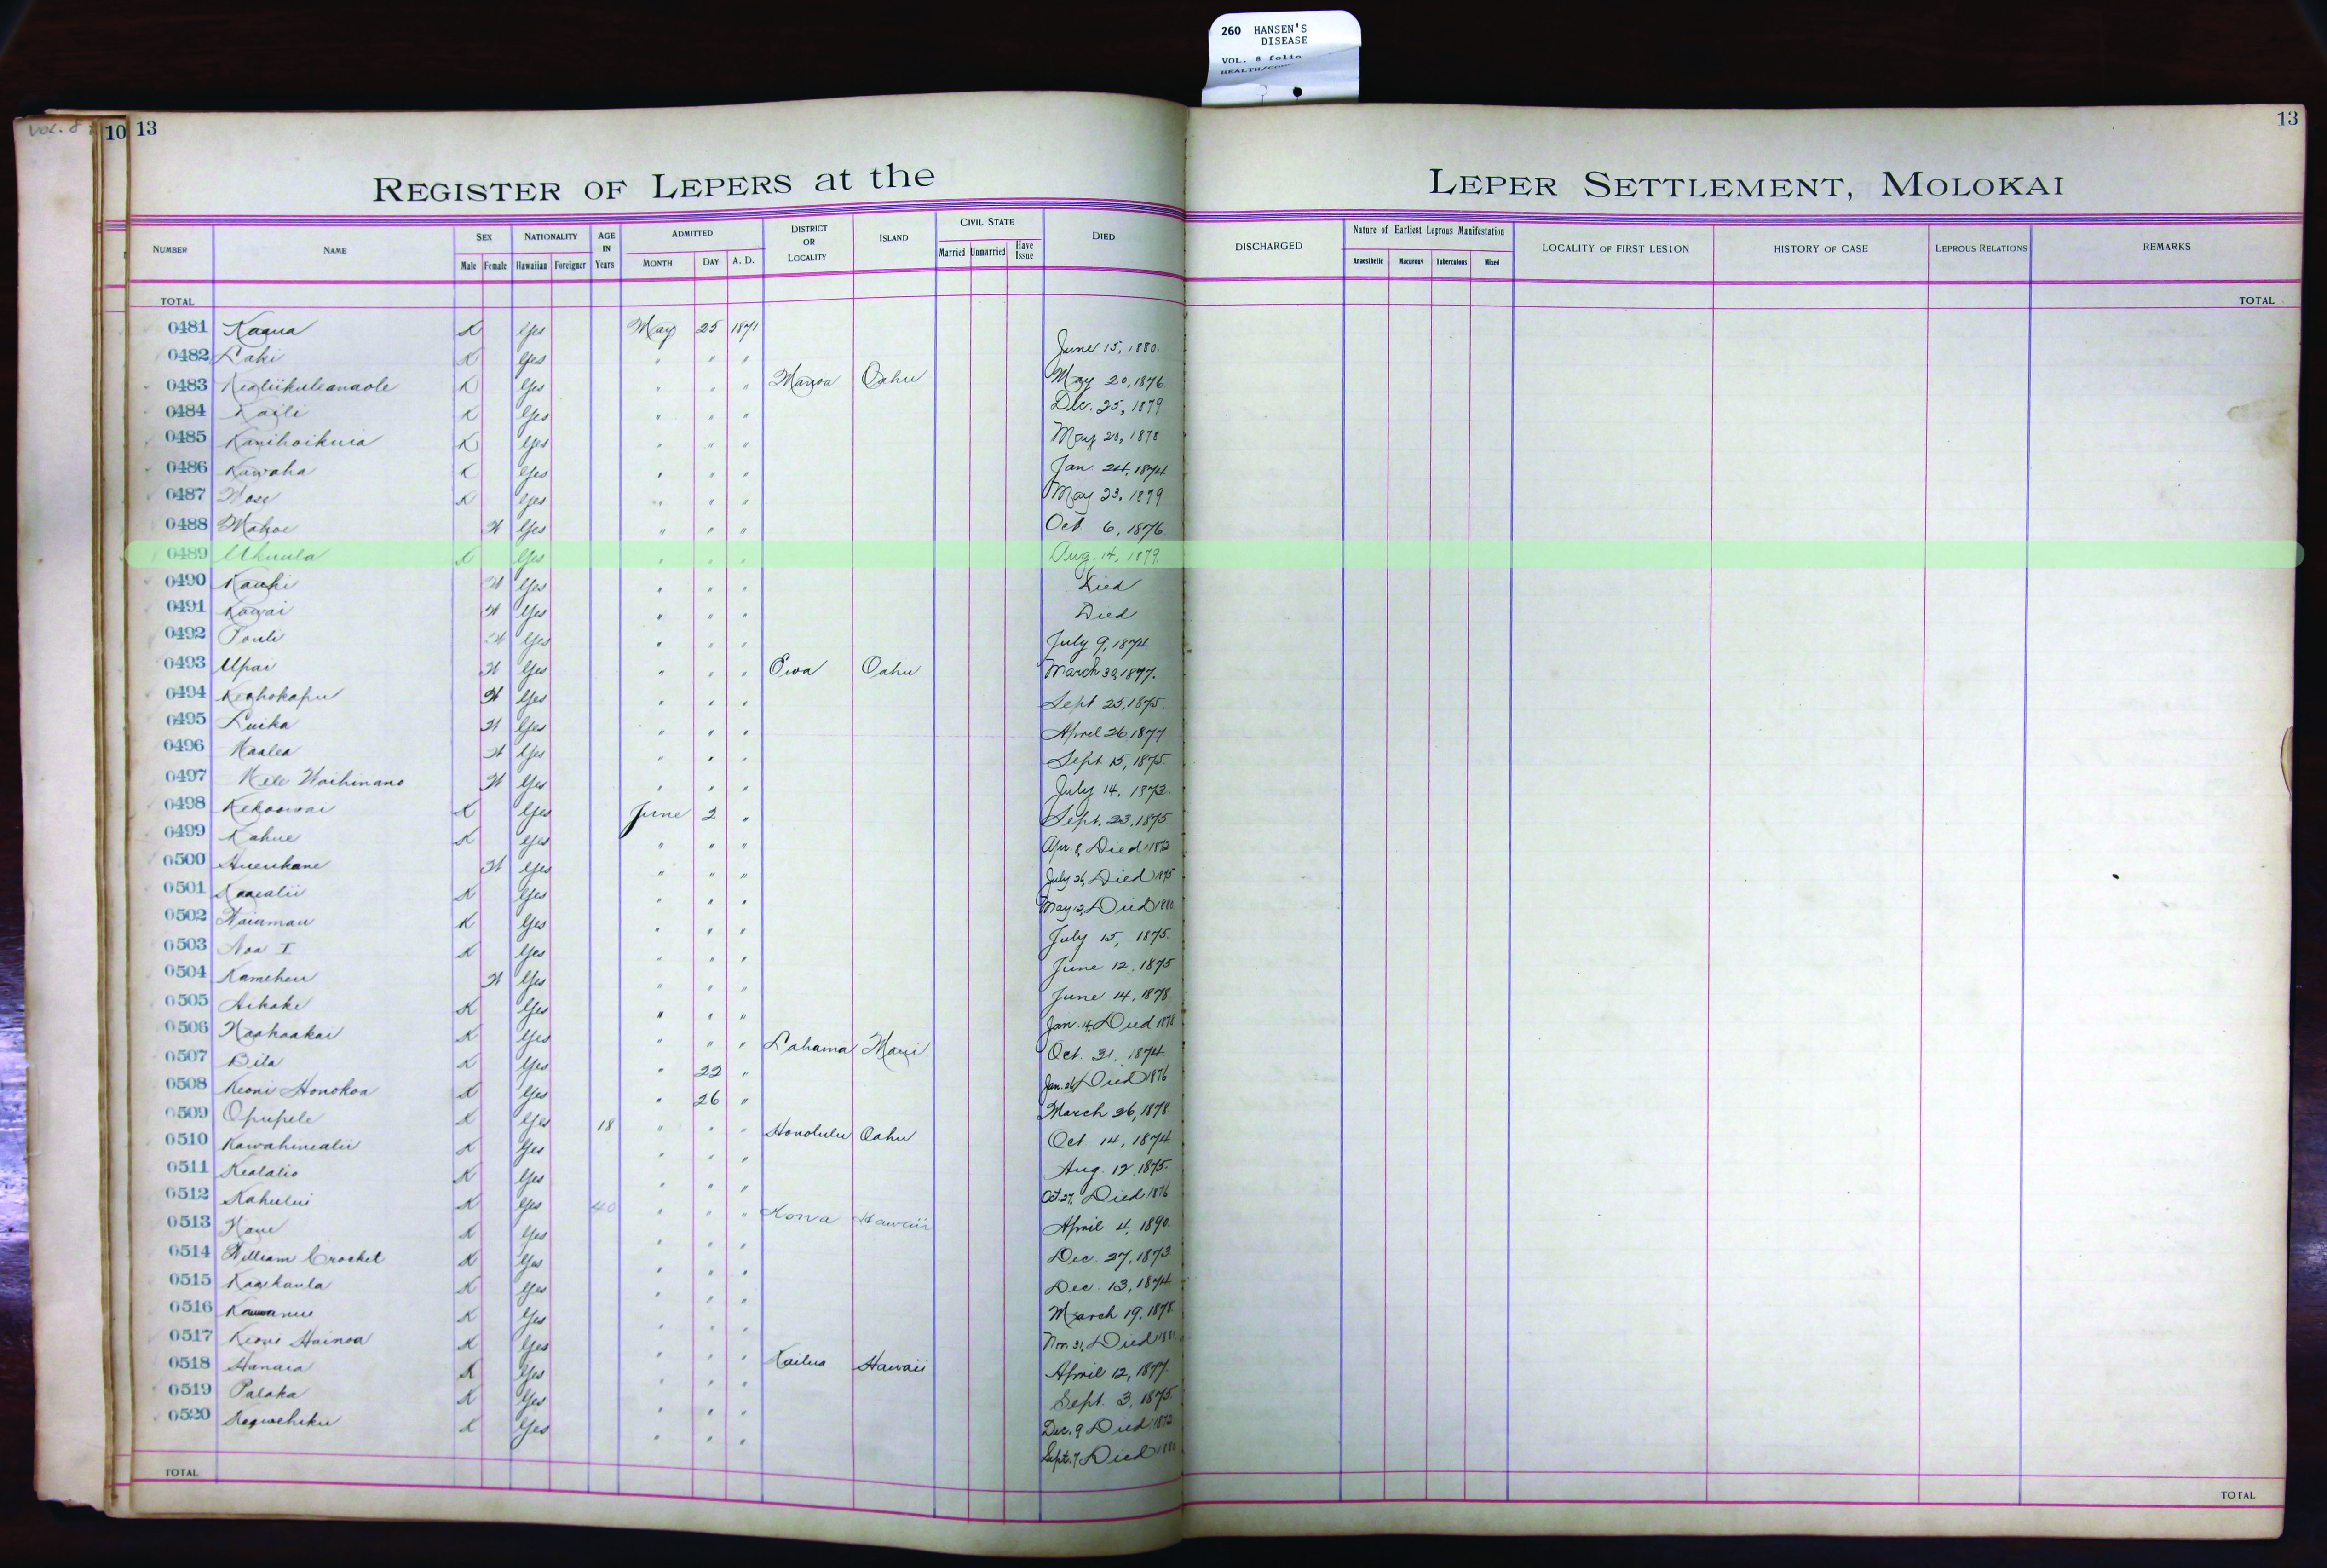 260 HANSEN'S
DISEASE
VOL. 8 folio
VOL. 8
10 13
13
REGISTER OF LEPERS at the LEPER SETTLEMENT, MOLOKAI
NUMBER NAME SEX Male Female NATIONALITY Hawaiian Foreigner AGE IN Years ADMITTED MONTH DAY A. D. DISTRICT OR LOCALITY ISLAND CIVIL STATE Married Unmarried Have Issue DIED DISCHARGED Nature of Earliest Leprous Manifestation Anaesthetic Macurous Tuberculous Mixed LOCALITY OF FIRST LESION HISTORY OF CASE LEPROUS RELATIONS REMARKS
TOTAL TOTAL
0481 Kaaua K Yes May 25 1871
0482 Laki K Yes " " " June 15, 1880.
0483 Kealiikuleanaole K Yes " " " Manoa Oahu May 20, 1876
0484 Kaili K Yes " " " Dec. 25, 1879
0485 Kanihoikuia K Yes " " " May 20, 1878
0486 Kawaha K Yes " " " Jan. 24, 1874
0487 K Yes " " " May 23, 1879
0488 Mahoe W Yes " " " Oct 6, 1876.
0489 Ukuula K Yes " " " Aug. 14, 1879.
0490 Kauhi W Yes " " " Died
0491 Kawai W Yes " " " Died
0492 Pauli W Yes " " " July 9, 1874
0493 Upai W Yes " " " Ewa Oahu March 30, 1877.
0494 Keahokapu W Yes " " " Sept 25, 1875.
0495 Luika W Yes " " " April 26 1877
0496 Maalea W Yes " " " Sept. 15, 1875.
0497 Mele Waihinano W Yes " " " July 14, 1873.
0498 Kekoowai K Yes June 2 " Sept. 23, 1875
0499 Kahue K Yes " " " Apr. 8, Died 1872
0500 Hueukane W Yes " " " July 26, Died 1875
0501 Kaaealii K Yes " " " May 12, Died 1880
0502 Waiamau K Yes " " " July 15, 1875.
0503 Noa I K Yes " " " June 12, 1875
0504 Kameheu W Yes " " " June 14, 1878
0505 Aikake K Yes " " " Jan. 14, Died 1878
0506 Naahaakai K Yes " " " Lahaina Maui Oct. 31, 1874
0507 Bila K Yes " 22 " Jan. 26, Died 1876
0508 Keoni Honokoa K Yes " 26 " March 26, 1878
0509 Opupele K Yes 18 " " " Honolulu Oahu Oct 14, 1874
0510 Kawahinealii K Yes " " " Aug. 12, 1875.
0511 Kealalio K Yes " " " Oct. 27, Died 1876
0512 Kahului K Yes 40 " " " Kona Hawaii April 4, 1890.
0513 K Yes " " " Dec. 27, 1873
0514 William Crocket K Yes " " " Dec. 13, 1874
0515 Kaaikaula K Yes " " " March 19, 1878
0516 K Yes " " " Nov. 31, Died
0517 Keoni Hainoa K Yes " " " Kailua Hawaii April 12, 1877.
0518 Hanaia K Yes " " " Sept. 3, 1875
0519 Palaka K Yes " " " Dec. 9 Died 1872
0520 K Yes " " " Sept. 7, Died 1880
TOTAL TOTAL